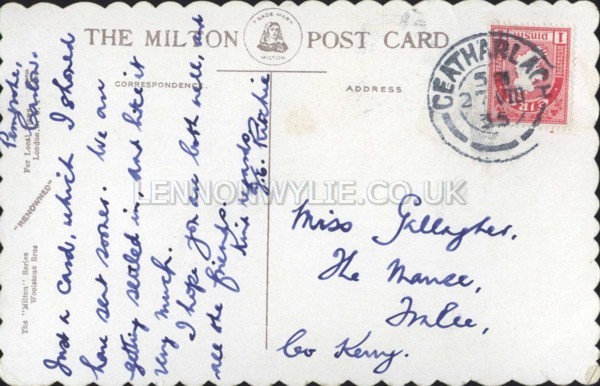 THE MILTON POST CARD
TRADE MARK
MILTON
CORRESPONDENCE
ADDRESS
Carlow.
Just a card, which I should
have sent sooner. We are
getting settled in and like it
very much.
I hope you are both well, and
all the friends.
Kind regards,
Ritchie
Miss Gallagher,
The Manse,
Tralee,
Co Kerry.
CEATHARLACH
35
1
PINGIN
The "Milton" Series
Woolstone Bros
"RENOWNED"
For Local
London
LENNONWYLIE.CO.UK